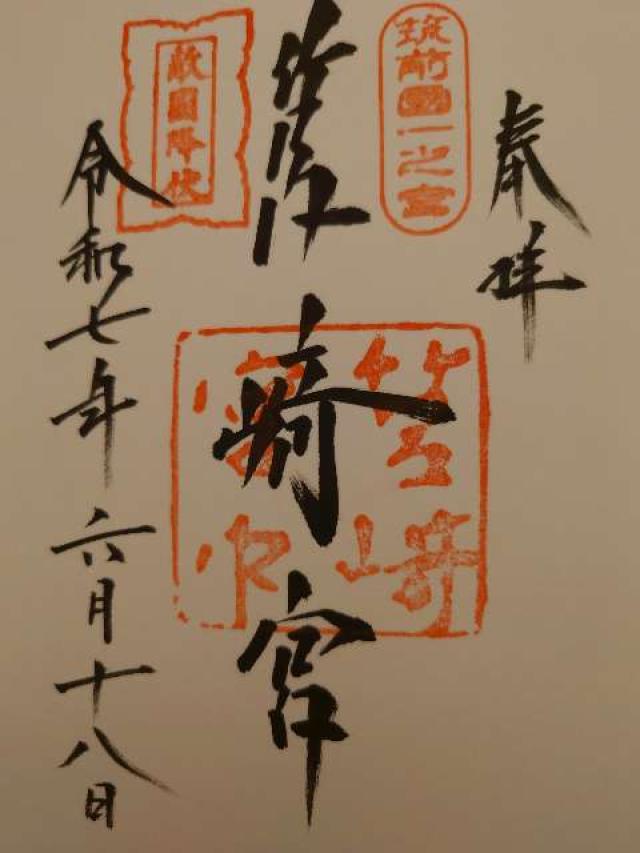 奉拝
筑前國一之宮
筥崎宮
筥崎
宮印
敵國降伏
令和七年六月十八日